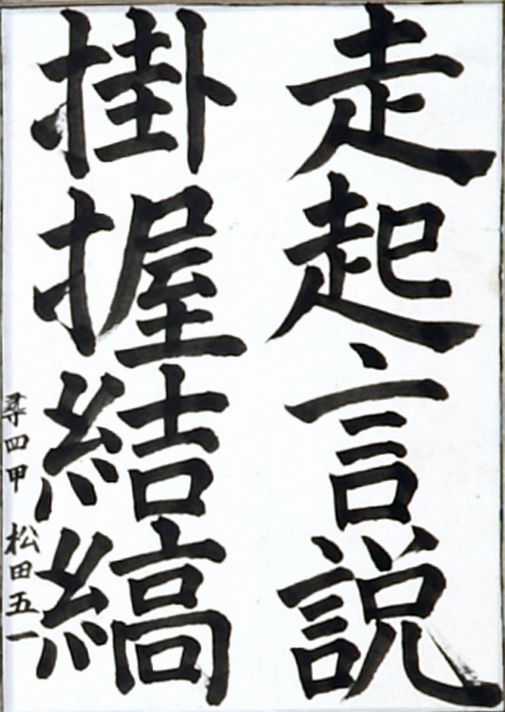 走起言説
掛握結縞
尋四甲 松田五一